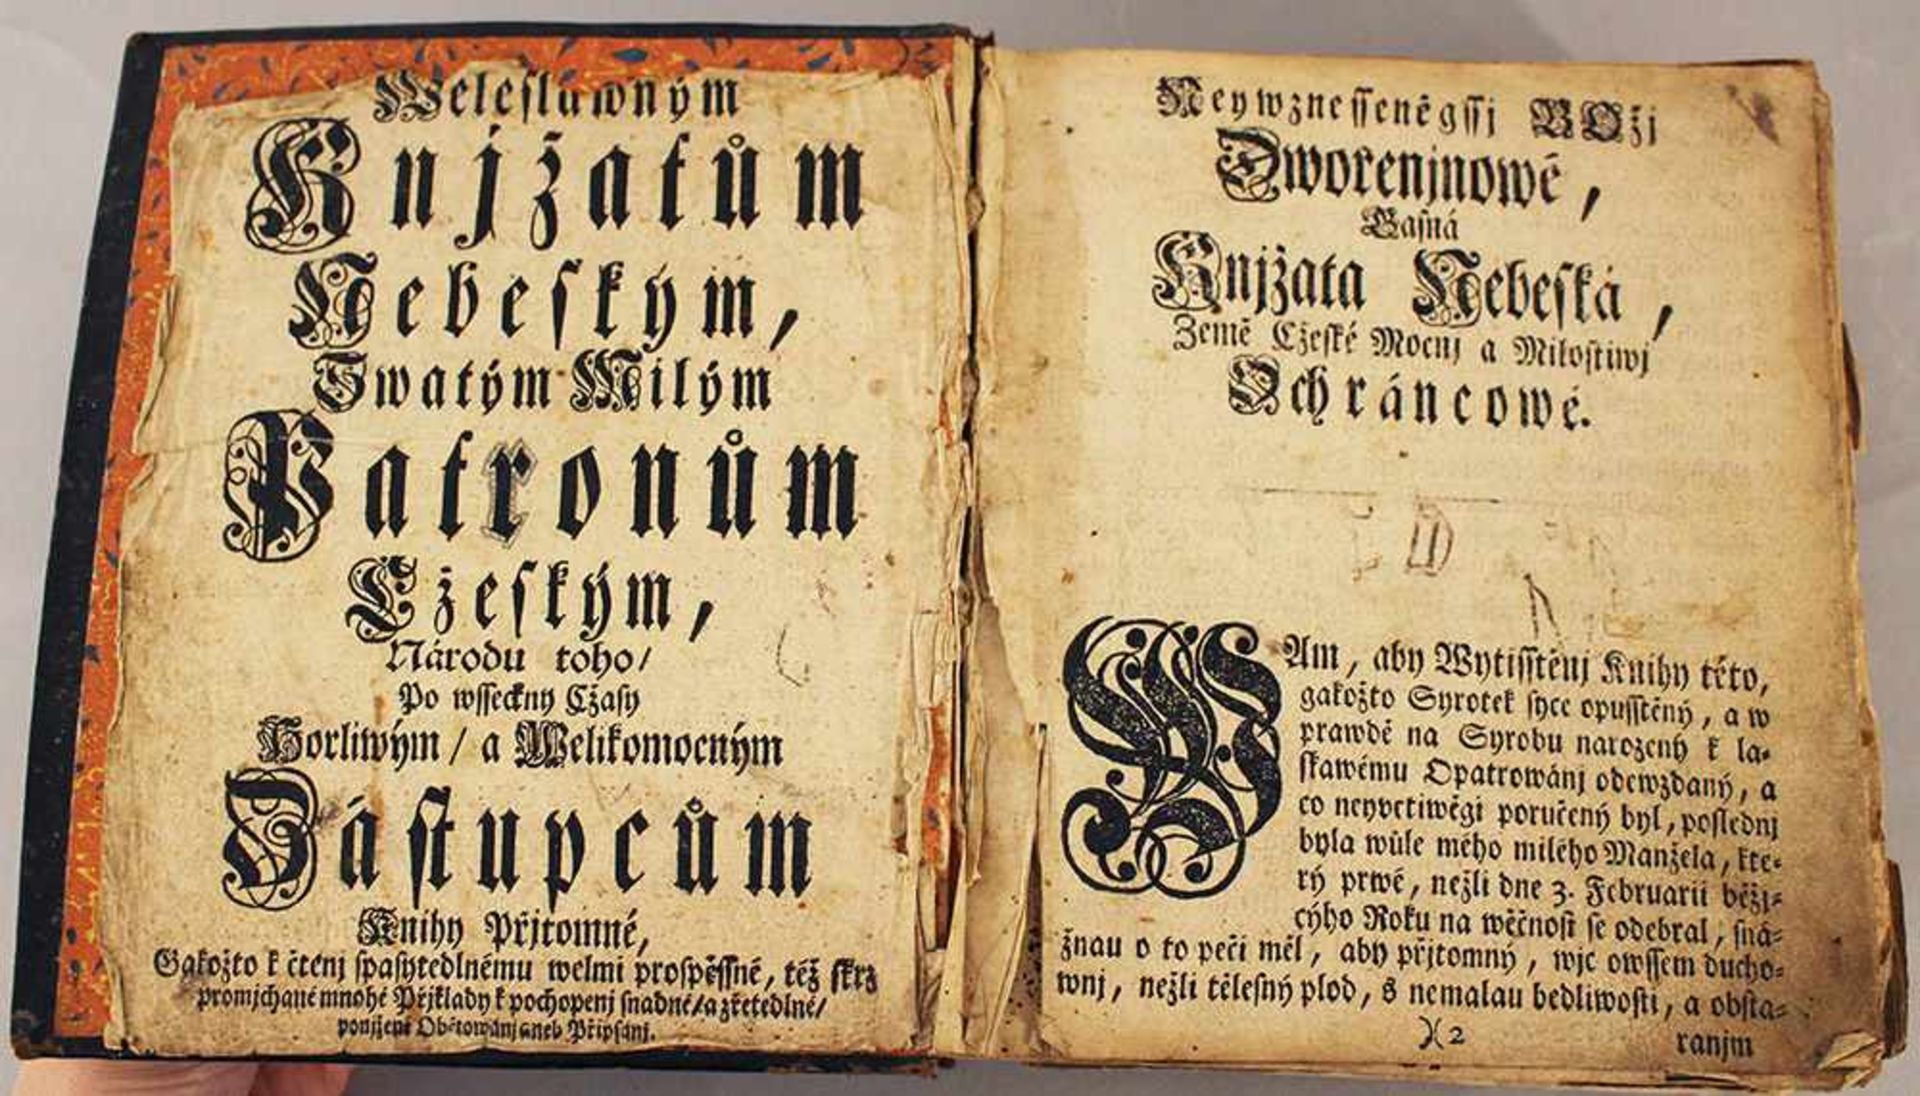 Weleslawným
Knjžatům
Nebeským,
Swatým Milým
Patronům
Cžeským,
Národu toho/
Po wsseckny Cžasy
Horliwým/ a Welikomocným
Zástupcům
Knihy Přjtomné,
Gakožto k čtenj spasytedlnému welmi prospěssné, též skrz
promjchané mnohé Přjklady k pochopenj snadné/ a zřetedlné/
ponjžené Obětowánj aneb Připsánj.
Neywznesseněgssj BOžj
Dworenjnowé,
Gasná
Knjžata Nebeská,
Země Cžeské Mocnj a Milostiwj
Ochráncowé.
WAm, aby Wytisstěnj Knihy této,
gakožto Syrotek syce opusstěný, a w
prawdě na Syrobu narozený k la-
skawému Opatrowánj odewzdaný, a
co neyvctiwěgi poručený byl, poslednj
byla wůle mého milého Manžela, kte-
rý prwé, nežli dne 3. Februarii běžj-
cýho Roku na wěčnost se odebral, sná-
žnau o to peči měl, aby přjtomný, wjc owssem ducho-
wnj, nežli tělesný plod, s nemalau bedliwosti, a obsta-
)( 2
ranjm